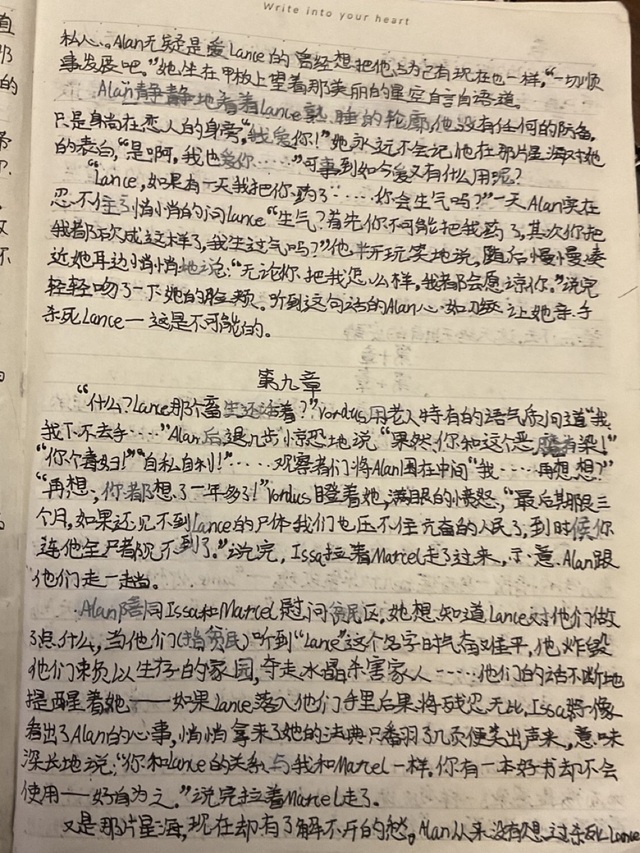 Write into your heart
私心。Alan无疑是爱Lance的曾经想把他占为己有现在也一样,“一切顺
事发展吧。”她坐在甲板上望着那美丽的星空自言自语道。
Alan静静地看着Lance熟睡的轮廓,他没有任何的防备,
只是身尚在恋人的身旁,“我爱你!”她永远不会记他在那片星海对她
的表白,“是啊,我也爱你……”可事到如今爱又有什么用呢?
“Lance,如果有一天我把你药了……你会生气吗?”一天Alan实在
忍不住了悄悄的问lance“生气?首先你不可能把我药了,其次你把
我都砍成这样了,我生过气吗?”他半开玩笑地说,随后慢慢凑
近她耳边悄悄地说:“无论你把我怎么样,我都会愿谅你。”说完
轻轻吻了一下她的脸颊。听到这句话的Alan心如刀绞让她亲手
杀死Lance—这是不可能的。
第九章
“什么?Lance那个畜生还活着?”Vordus用老人特有的语气质问道“我
我下不去手……”Alan后退几步惊恐地说“果然,你和这个恶魔有染!”
“你个毒妇!”“自私自利!”……观察者们将Alan围在中间“我……再想想?”
“再想,你都想了一年多了!”Vordus瞪着她,满眼的愤怒,“最后期限三
个月,如果还见不到Lance的尸体我们也压不住亢奋的人民了,到时候你
连他全尸都见不到了。”说完,Issa拉着Marcel走了过来,示意Alan跟
他们走一走。
Alan陪同Issa和Marcel慰问贫民区,她想知道Lance对他们做
了点什么,当他们(指贫民)听到“Lance”这个名字时气右难平,他炸毁
他们来负以生存的家园,夺走水晶杀害家人……他们的话不断地
提醒着她——如果Lance落入他们手里后果将残忍无比,Issa好像
看出了Alan的心事,悄悄拿来了她的法典只番羽了几页便笑出声来,意味
深长地说:“你和Lance的关系与我和Marcel一样。你有一本好书却不会
使用——好自为之。”说完拉着Marcel走了。
又是那片星海,现在却有了解不斤的愁。Alan从来没有想过杀死Lance